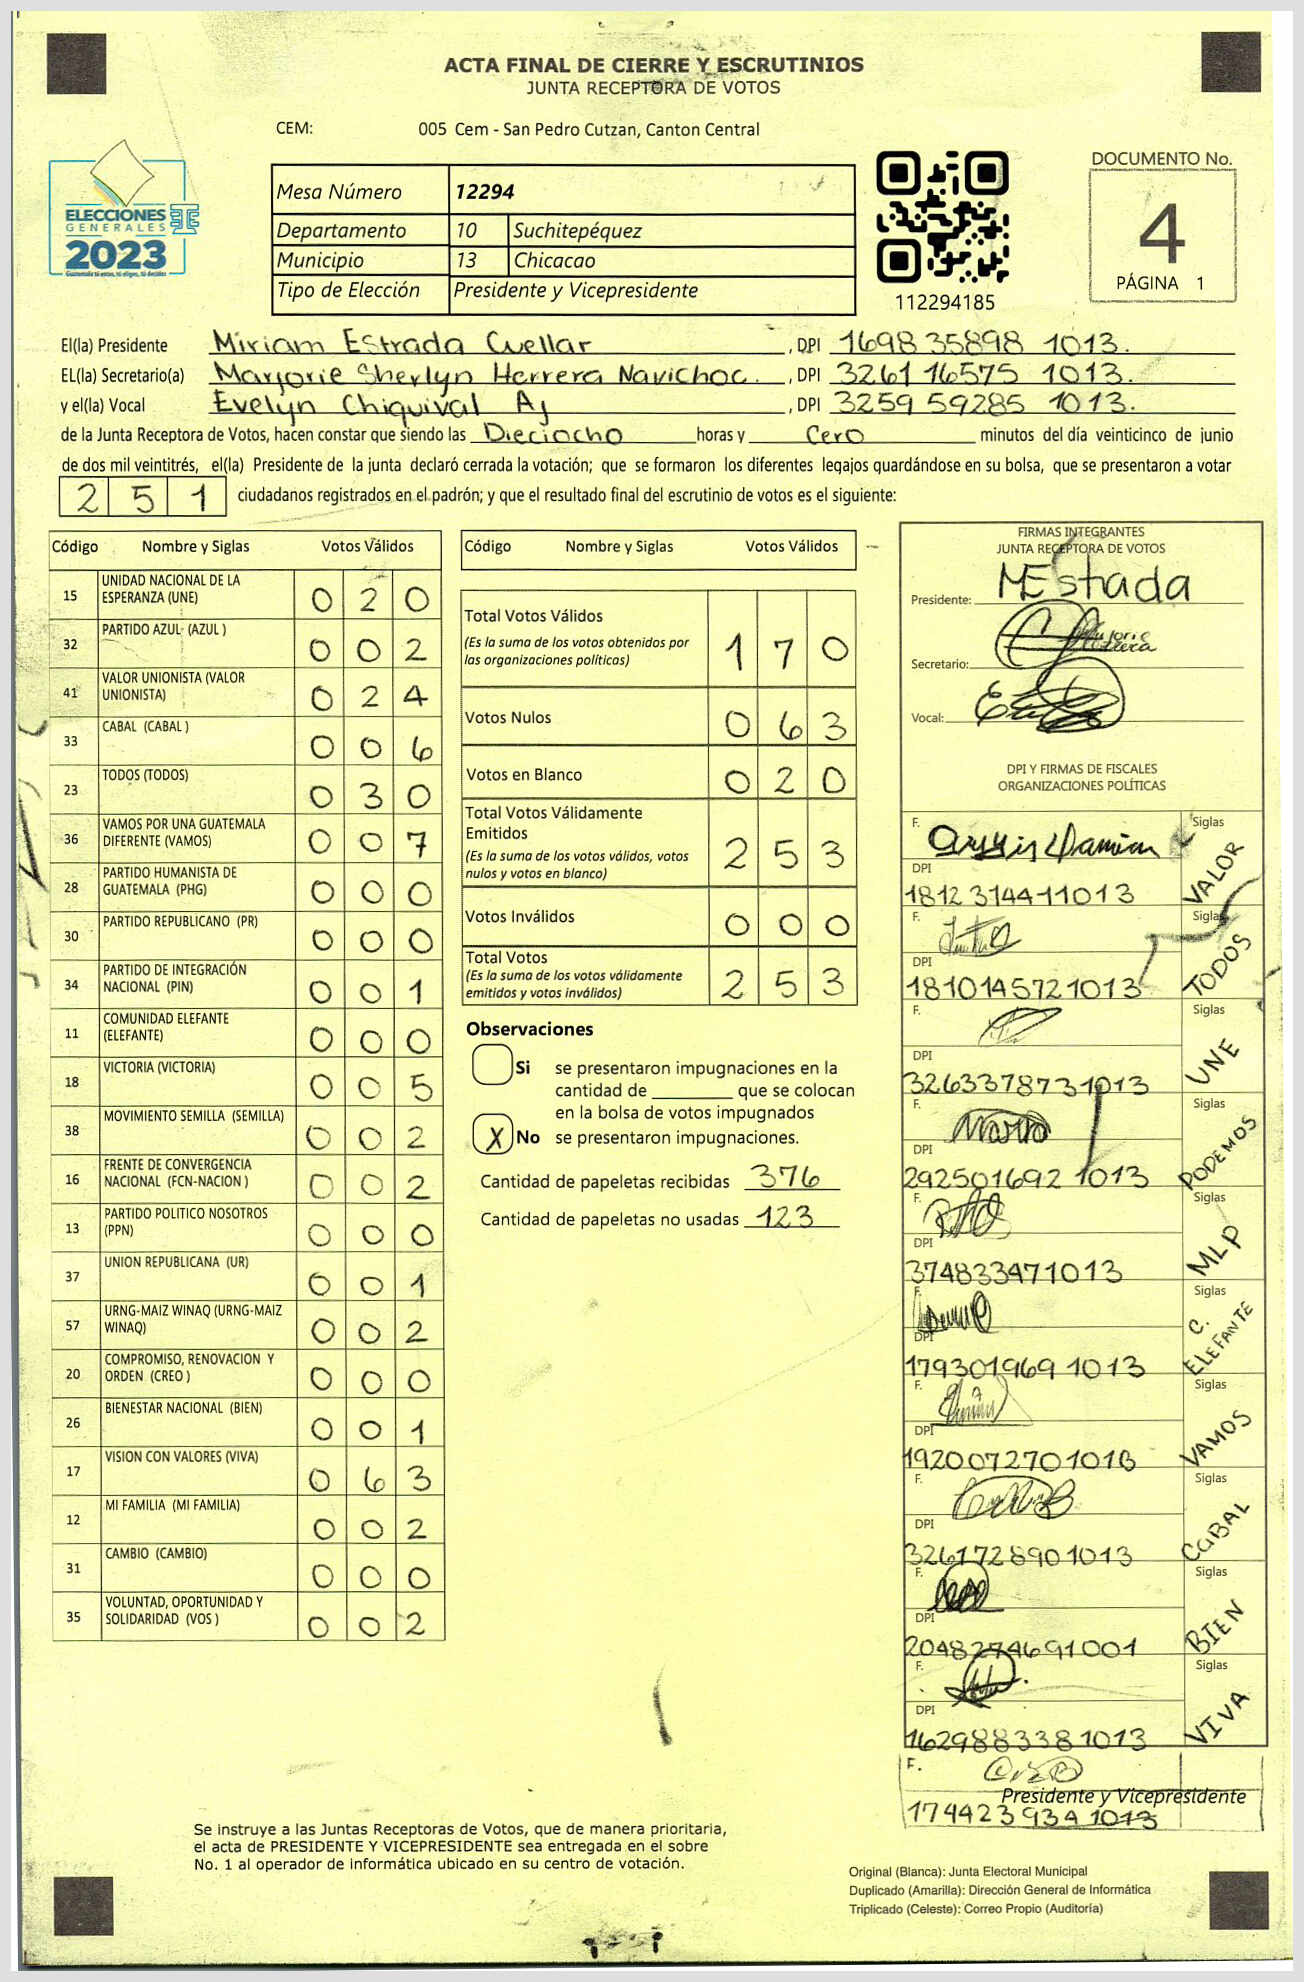 ACTA FINAL DE CIERRE Y ESCRUTINIOS
JUNTA RECEPTORA DE VOTOS
CEM: 005 Cem - San Pedro Cutzan, Canton Central
ELECCIONES
GENERALES
2023
Guatemala tú eres, tú eliges, tú decides
Mesa Número 12294
Departamento 10 Suchitepéquez
Municipio 13 Chicacao
Tipo de Elección Presidente y Vicepresidente
112294185
DOCUMENTO No.
4
PÁGINA 1
El(la) Presidente Miriam Estrada Cuellar, DPI 1698 35898 1013.
EL(la) Secretario(a) Marjorie Sherlyn Herrera Navichoc., DPI 3261 16575 1013.
y el(la) Vocal Evelyn Chiquival Aj, DPI 3259 59285 1013.
de la Junta Receptora de Votos, hacen constar que siendo las Dieciocho horas y Cero minutos del día veinticinco de junio
de dos mil veintitrés, el(la) Presidente de la junta declaró cerrada la votación; que se formaron los diferentes legajos guardándose en su bolsa, que se presentaron a votar
2 5 1 ciudadanos registrados en el padrón; y que el resultado final del escrutinio de votos es el siguiente:
Código Nombre y Siglas Votos Válidos
15 UNIDAD NACIONAL DE LA ESPERANZA (UNE) 0 2 0
32 PARTIDO AZUL (AZUL ) 0 0 2
41 VALOR UNIONISTA (VALOR UNIONISTA) 0 2 4
33 CABAL (CABAL ) 0 0 6
23 TODOS (TODOS) 0 3 0
36 VAMOS POR UNA GUATEMALA DIFERENTE (VAMOS) 0 0 7
28 PARTIDO HUMANISTA DE GUATEMALA (PHG) 0 0 0
30 PARTIDO REPUBLICANO (PR) 0 0 0
34 PARTIDO DE INTEGRACIÓN NACIONAL (PIN) 0 0 1
11 COMUNIDAD ELEFANTE (ELEFANTE) 0 0 0
18 VICTORIA (VICTORIA) 0 0 5
38 MOVIMIENTO SEMILLA (SEMILLA) 0 0 2
16 FRENTE DE CONVERGENCIA NACIONAL (FCN-NACION ) 0 0 2
13 PARTIDO POLITICO NOSOTROS (PPN) 0 0 0
37 UNION REPUBLICANA (UR) 0 0 1
57 URNG-MAIZ WINAQ (URNG-MAIZ WINAQ) 0 0 2
20 COMPROMISO, RENOVACION Y ORDEN (CREO ) 0 0 0
26 BIENESTAR NACIONAL (BIEN) 0 0 1
17 VISION CON VALORES (VIVA) 0 6 3
12 MI FAMILIA (MI FAMILIA) 0 0 2
31 CAMBIO (CAMBIO) 0 0 0
35 VOLUNTAD, OPORTUNIDAD Y SOLIDARIDAD (VOS ) 0 0 2
Código Nombre y Siglas Votos Válidos
Total Votos Válidos 1 7 0
(Es la suma de los votos obtenidos por
las organizaciones políticas)
Votos Nulos 0 6 3
Votos en Blanco 0 2 0
Total Votos Válidamente
Emitidos 2 5 3
(Es la suma de los votos válidos, votos
nulos y votos en blanco)
Votos Inválidos 0 0 0
Total Votos 2 5 3
(Es la suma de los votos válidamente
emitidos y votos inválidos)
Observaciones
Si se presentaron impugnaciones en la
cantidad de ________ que se colocan
en la bolsa de votos impugnados
X No se presentaron impugnaciones.
Cantidad de papeletas recibidas 376
Cantidad de papeletas no usadas 123
FIRMAS INTEGRANTES
JUNTA RECEPTORA DE VOTOS
Presidente: MEstrada
Secretario:
Vocal:
DPI Y FIRMAS DE FISCALES
ORGANIZACIONES POLÍTICAS
F. Siglas
DPI VALOR
1812 314411013
F. Siglas
DPI TODOS
1810145721013
F. Siglas
DPI UNE
3263378731013
F. Siglas
DPI PODEMOS
292501692 1013
F. Siglas
DPI MLP
374833471013
F. Siglas
DPI C. ELEFANTE
179301969 1013
F. Siglas
DPI VAMOS
1920072701013
F. Siglas
DPI CABAL
3261728901013
F. Siglas
DPI BIEN
2048274691001
F. Siglas
DPI VIVA
1629883381013
F.
Presidente y Vicepresidente
174423934 1013
Se instruye a las Juntas Receptoras de Votos, que de manera prioritaria,
el acta de PRESIDENTE Y VICEPRESIDENTE sea entregada en el sobre
No. 1 al operador de informática ubicado en su centro de votación.
Original (Blanca): Junta Electoral Municipal
Duplicado (Amarilla): Dirección General de Informática
Triplicado (Celeste): Correo Propio (Auditoría)